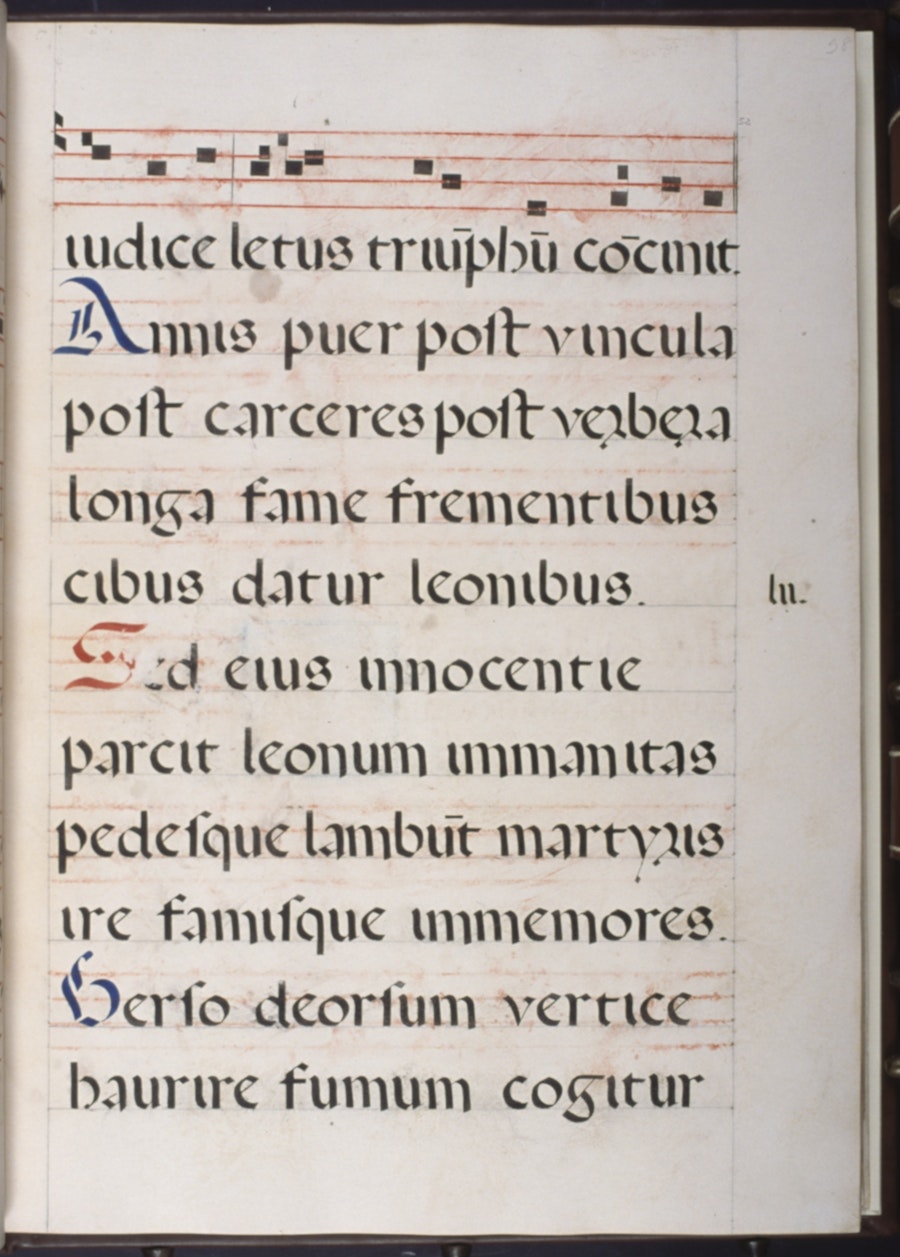 iudice letus triūphū cōcinit.
Annis puer poſt vincula
poſt carceres poſt verbera
longa fame frementibus
cibus datur leonibus.
lii.
Sed eius innocentie
parcit leonum immanitas
pedeſque lambūt martyris
ire famiſque immemores.
Verſo deorſum vertice
haurire fumum cogitur